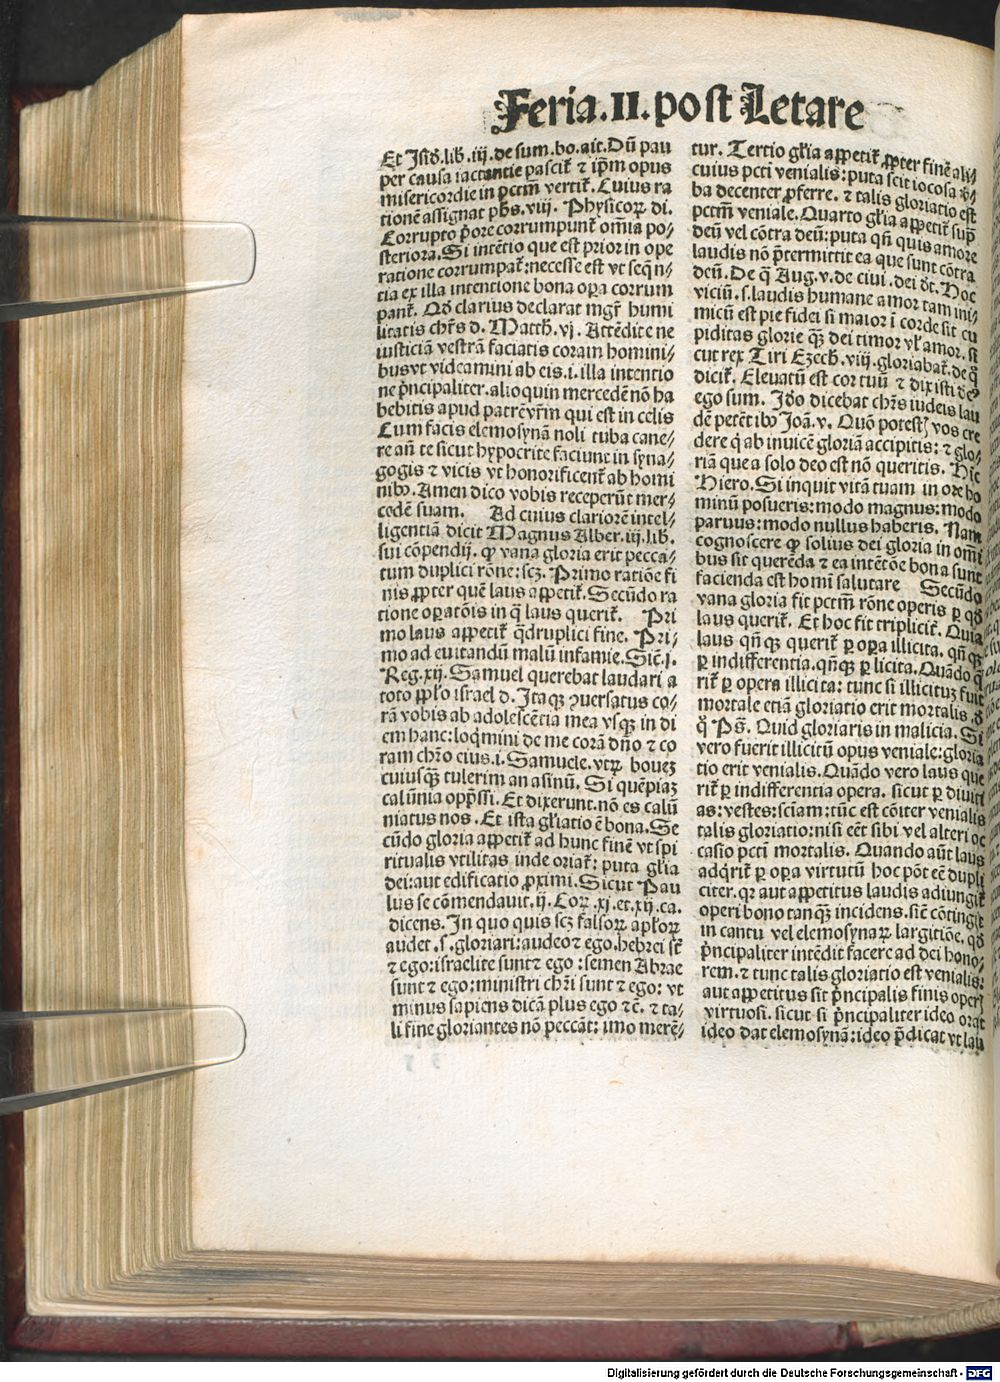 Feria.II.post Letare
Et Jsid̄.lib.iij.de sum.bo.ait.Dū pau
per causa iactantie pascit᷑ ⁊ ip̄m opus
misericordie in pctm̄ vertit᷑. Cuius ra
tionē assignat ph̄s.viij. Physicoꝝ di.
Corrupto p̄ore corrumpunt᷑ om̄ia po/
steriora. Si intētio que est prior in ope
ratione corrumpat᷑: necesse est vt seq̄n/
tia ex illa intentione bona oꝑa corrum
pant᷑. Qd̄ clarius declarat mgr̄ humi
litatis chr̄s d. Matth̄.vj. Attēdite ne
iusticiā vestrā faciatis coram homini/
bus vt videamini ab eis.i.illa intentio
ne p̄ncipaliter.alioquin mercedē nō ha
bebitis apud patrē vr̄m qui est in celis
Cum facis elemosynā noli tuba cane/
re an̄ te sicut hypocrite faciunt in syna/
gogis ⁊ vicis vt honorificent᷑ ab homi
nibꝰ. Amen dico vobis receperūt mer/
cedē suam. Ad cuius clariorē intel/
ligentiā dicit Magnus Alber.iij.lib.
sui cōpendij. ꝙ vana gloria erit pecca/
tum duplici rōne: scꝫ. Primo ratiōe fi
nis ꝓpter quē laus appetit᷑. Secūdo ra
tione oꝑatōis in q̄ laus querit᷑. Pri
mo laus appetit᷑ q̄druplici fine. Pri/
mo ad euitandū malū infamie. Sic̄.j.
Reg.xij. Samuel querebat laudari a
toto pp̄lo israel d. Itaqꝫ ꝯuersatus co/
rā vobis ab adolescētia mea vsqꝫ in di
em hanc: loq̄mini de me corā dn̄o ⁊ co
ram chr̄o eius.i. Samuele. vtꝝ bouez
cuiusqꝫ tulerim an asinū. Si quēpiaꝫ
calūnia opp̄ssi. Et dixerunt. nō es calū
niatus nos. Et ista gl̄iatio ē bona. Se
cūdo gloria appetit᷑ ad hunc finē vt spi
ritualis vtilitas inde oriat᷑: puta gl̄ia
dei: aut edificatio ꝓximi. Sicut Pau
lus se cōmendauit.ij. Coꝝ.xj.et.xij.ca.
dicens. In quo quis scꝫ falsoꝝ apl̄oꝝ
audet.s.gloriari: audeo ⁊ ego. hebrei st̄
⁊ ego: israelite sunt ⁊ ego: semen Abrae
sunt ⁊ ego: ministri chr̄i sunt ⁊ ego: vt
minus sapiens dicā plus ego ⁊c̄. ⁊ ta/
li fine gloriantes nō peccāt: imo merē/
tur. Tertio gl̄ia appetit᷑ ꝓpter finē ali/
cuius pcti venialis: puta scit iocosa
ba decenter ꝓferre. ⁊ talis gloriatio est
pctm̄ veniale. Quarto gl̄ia appetit᷑ sup̄
deū vel cōtra deū: puta qn̄ quis amore
laudis nō p̄termittit ea que sunt cōtra
deū. De q̄ Aug.v.de ciui.dei dt̄. Hoc
viciū.s.laudis humane amor tam ini/
micū est pie fidei si maior ī corde sit cu
piditas glorie qꝫ dei timor vl̓ amor. si
cut rex Tiri Ezech̄.viij.gloriabat᷑. de q̄
dicit᷑. Eleuatū est cor tuū ⁊ dixisti deꝰ
ego sum. Idō dicebat chr̄s iudeis lau
dē petētibꝰ Joā.v. Quō potestis vos cre
dere q̄ ab inuicē gloriā accipitis: ⁊ glo/
riā que a solo deo est nō queritis. Hic
Hiero. Si inquit vitā tuam in ore ho
minū posueris: modo magnus: modo
paruus: modo nullus haberis. Nam
cognoscere ꝙ solius dei gloria in om̄i
bus sit querēda ⁊ ea intētōe bona sunt
facienda est homī salutare Secūdo
vana gloria fit pctm̄ rōne operis ꝑ qd̄
laus querit᷑. Et hoc fit triplicit᷑. Quia
laus qn̄qꝫ querit᷑ ꝑ oꝑa illicita. qn̄qꝫ
ꝑ indifferentia. qn̄qꝫ ꝑ licita. Quādo q̄
rit᷑ ꝑ opera illicita: tunc si illicituꝫ fuit
mortale etiā gloriatio erit mortalis. d̄
q̊ Ps̄. Quid gloriaris in malicia. Si
vero fuerit illicitū opus veniale: gloria
tio erit venialis. Quādo vero laus que
rit᷑ ꝑ indifferentia opera. sicut ꝑ diuiti
as: vestes: sciam: tūc est cōiter venialis
talis gloriatio: nisi eēt sibi vel alteri oc
casio pcti mortalis. Quando aūt laus
adq̄rit᷑ ꝑ oꝑa virtutū hoc pōt eē dupli
citer. qꝛ aut appetitus laudis adiungit᷑
operi bono tanqꝫ incidens. sic̄ cōtingit
in cantu vel elemosynaꝝ largitiōe. qd̄
p̄ncipaliter intēdit facere ad dei hono/
rem. ⁊ tunc talis gloriatio est venialis:
aut appetitus sit p̄ncipalis finis oper̄
virtuosi. sicut si p̄ncipaliter ideo orat
ideo dat elemosynā: ideo p̄dicat vt lau
Digitalisierung gefördert durch die Deutsche Forschungsgemeinschaft - DFG